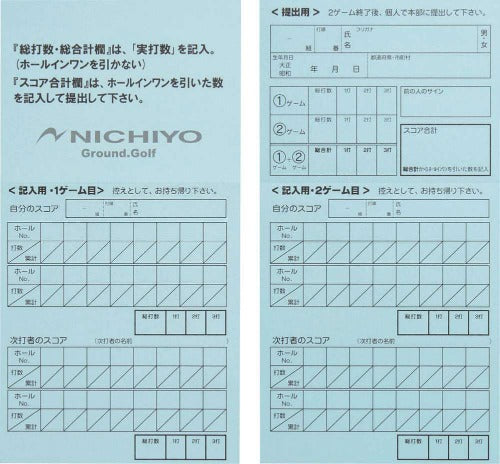 『総打数・総合計欄』は、「実打数」を記入。
(ホールインワンを引かない)
『スコア合計欄』は、ホールインワンを引いた数
を記入して提出して下さい。
NICHIYO
Ground.Golf
<記入用・1ゲーム目> 控えとして、お持ち帰り下さい。
自分のスコア - 組 打順 番 氏名
ホールNo.
打数 累計
ホールNo.
打数 累計
総打数 1打 2打 3打
次打者のスコア (次打者の名前 )
ホールNo.
打数 累計
ホールNo.
打数 累計
総打数 1打 2打 3打
<提出用> 2ゲーム終了後、個人で本部に提出して下さい。
- 組 打順 番 氏名 フリガナ 男・女
生年月日 大正 昭和 年 月 日 都道府県・市町村
①ゲーム 総打数 1打 2打 3打 前の人のサイン
②ゲーム 総打数 1打 2打 3打 スコア合計
①+②ゲーム 総合計 1打 2打 3打
<記入用・2ゲーム目> 控えとして、お持ち帰り下さい。
自分のスコア - 組 打順 番 氏名
ホールNo.
打数 累計
ホールNo.
打数 累計
総打数 1打 2打 3打
次打者のスコア (次打者の名前 )
ホールNo.
打数 累計
ホールNo.
打数 累計
総打数 1打 2打 3打